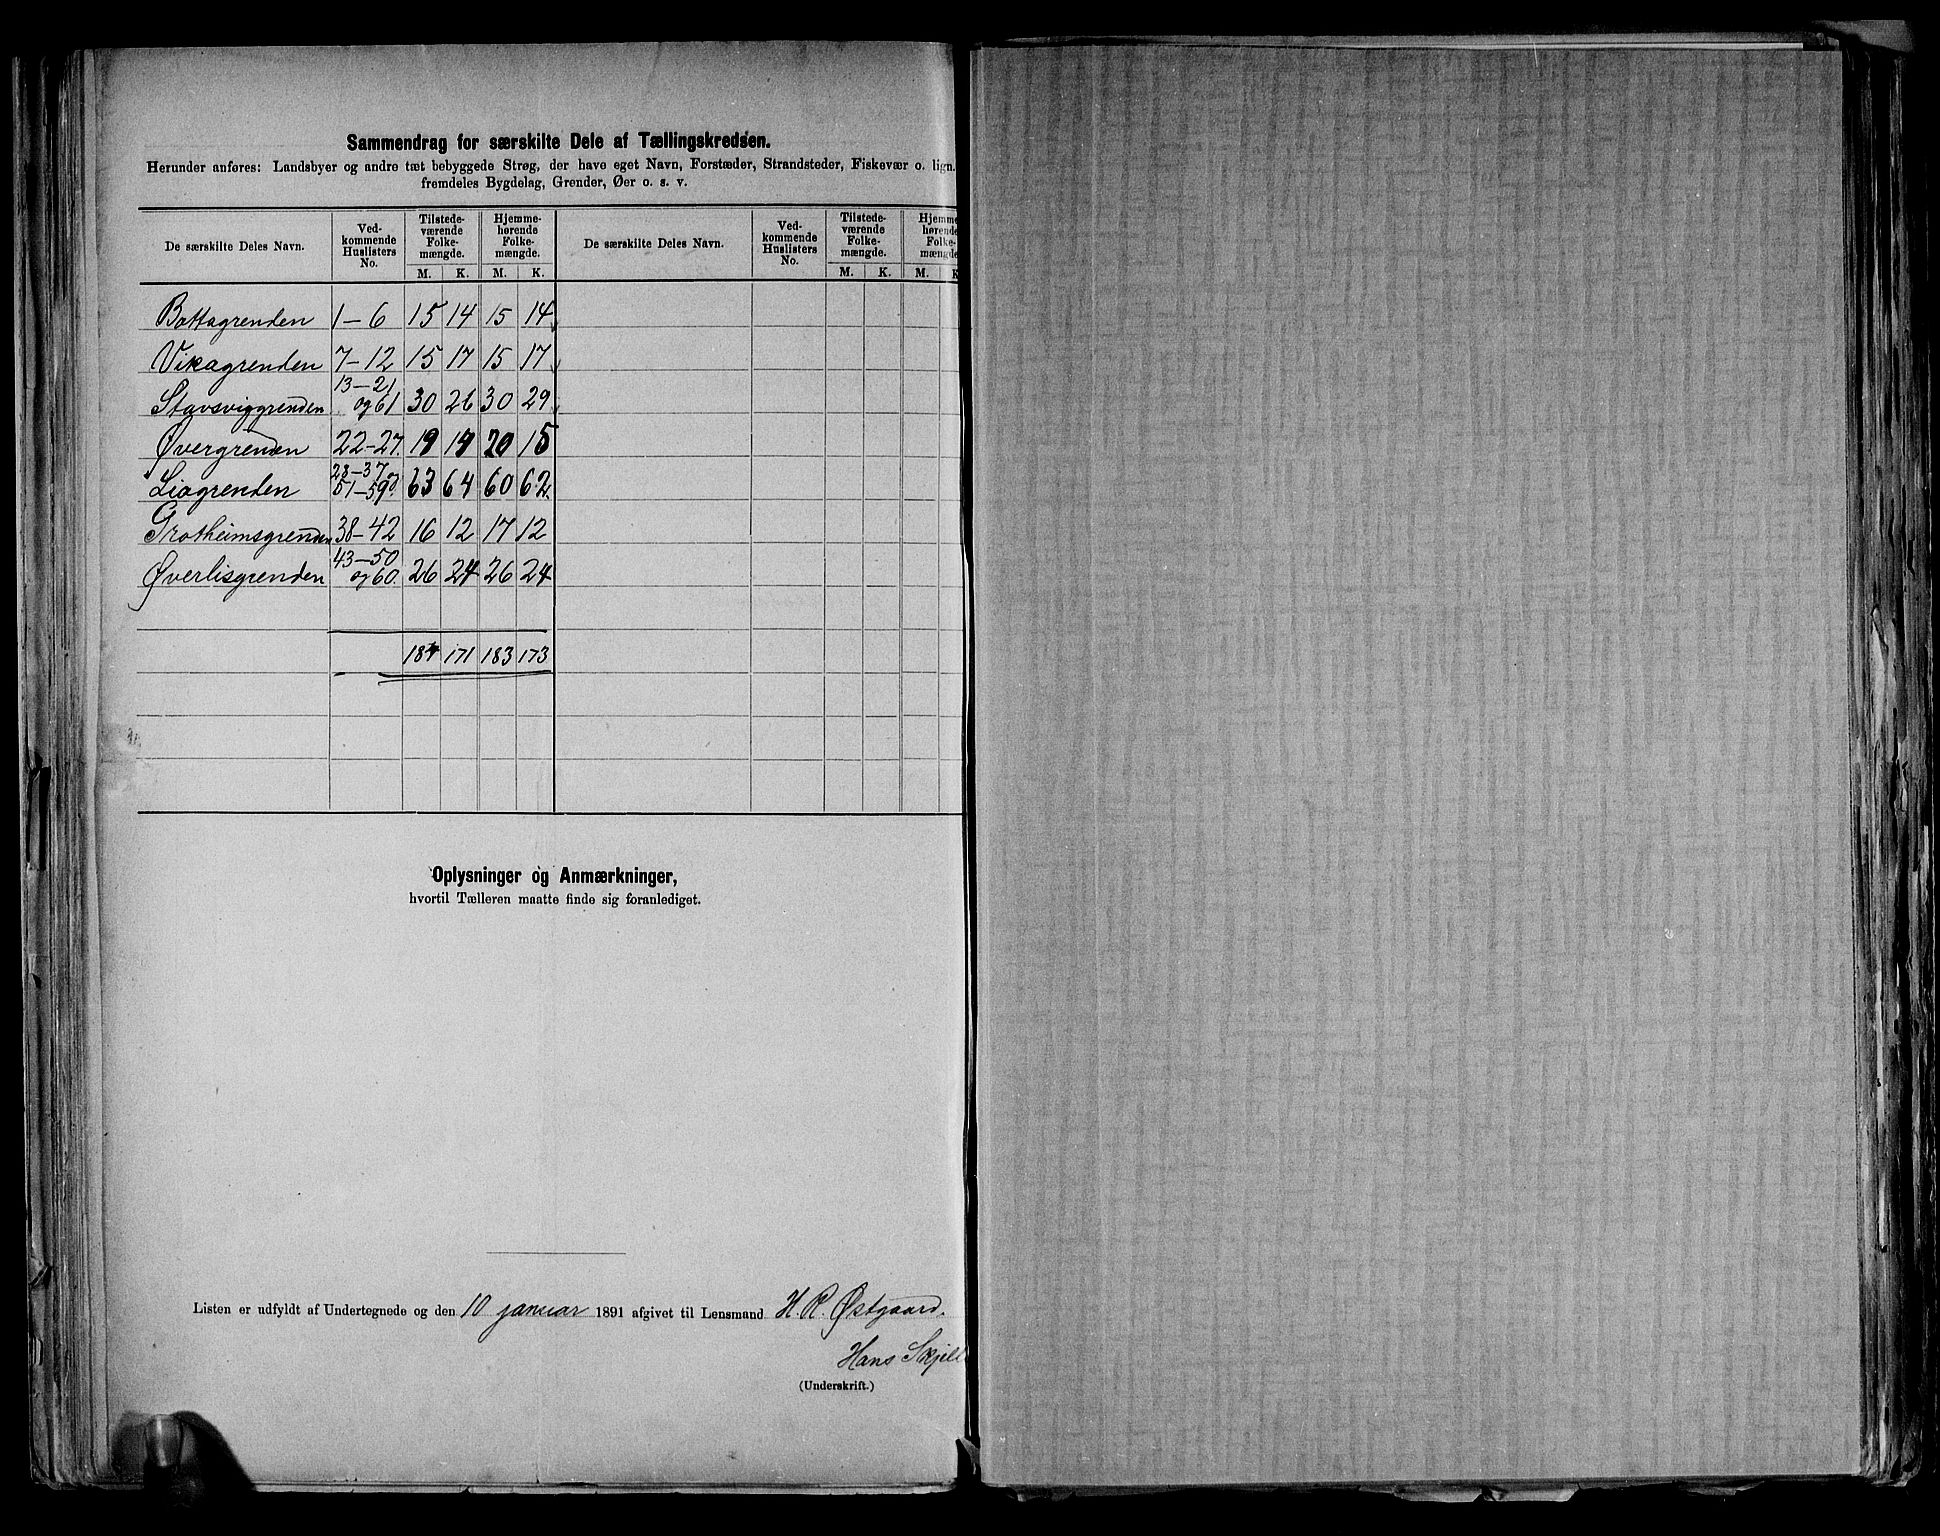 Sammendrag for særskilte Dele af Tællingskredsen.
Herunder anføres: Landsbyer og andre tæt bebyggede Strøg, der have eget Navn, Forstæder, Strandsteder, Fiskevær o. lign.
fremdeles Bygdelag, Grender, Øer o. s. v.
De særskilte Deles Navn. Ved-kommende Huslisters No. Tilstede-værende Folke-mængde. Hjemme-hørende Folke-mængde. De særskilte Deles Navn. Ved-kommende Huslisters No. Tilstede-værende Folke-mængde. Hjemme-hørende Folke-mængde
M. K. M. K. M. K. M. K
Bottagrenden 1-6 15 14 15 14
Vikagrenden 7-12 15 17 15 17
Stavsviggrenden 13-21 og 61 30 26 30 29
Øvergrenden 22-27. 19 14 20 15
Liagrenden 28-37 og 51-59 63 64 60 62.
Grotheimsgrenden 38-42 16 12 17 12
Øverlisgrenden 43-50 og 60. 26 24 26 24
184 171 183 173
Oplysninger og Anmærkninger,
hvortil Tælleren maatte finde sig foranlediget.
Listen er udfyldt af Undertegnede og den 10 januar 1891 afgivet til Lensmand H. R. Østgaard.
Hans Skjell
(Underskrift.)